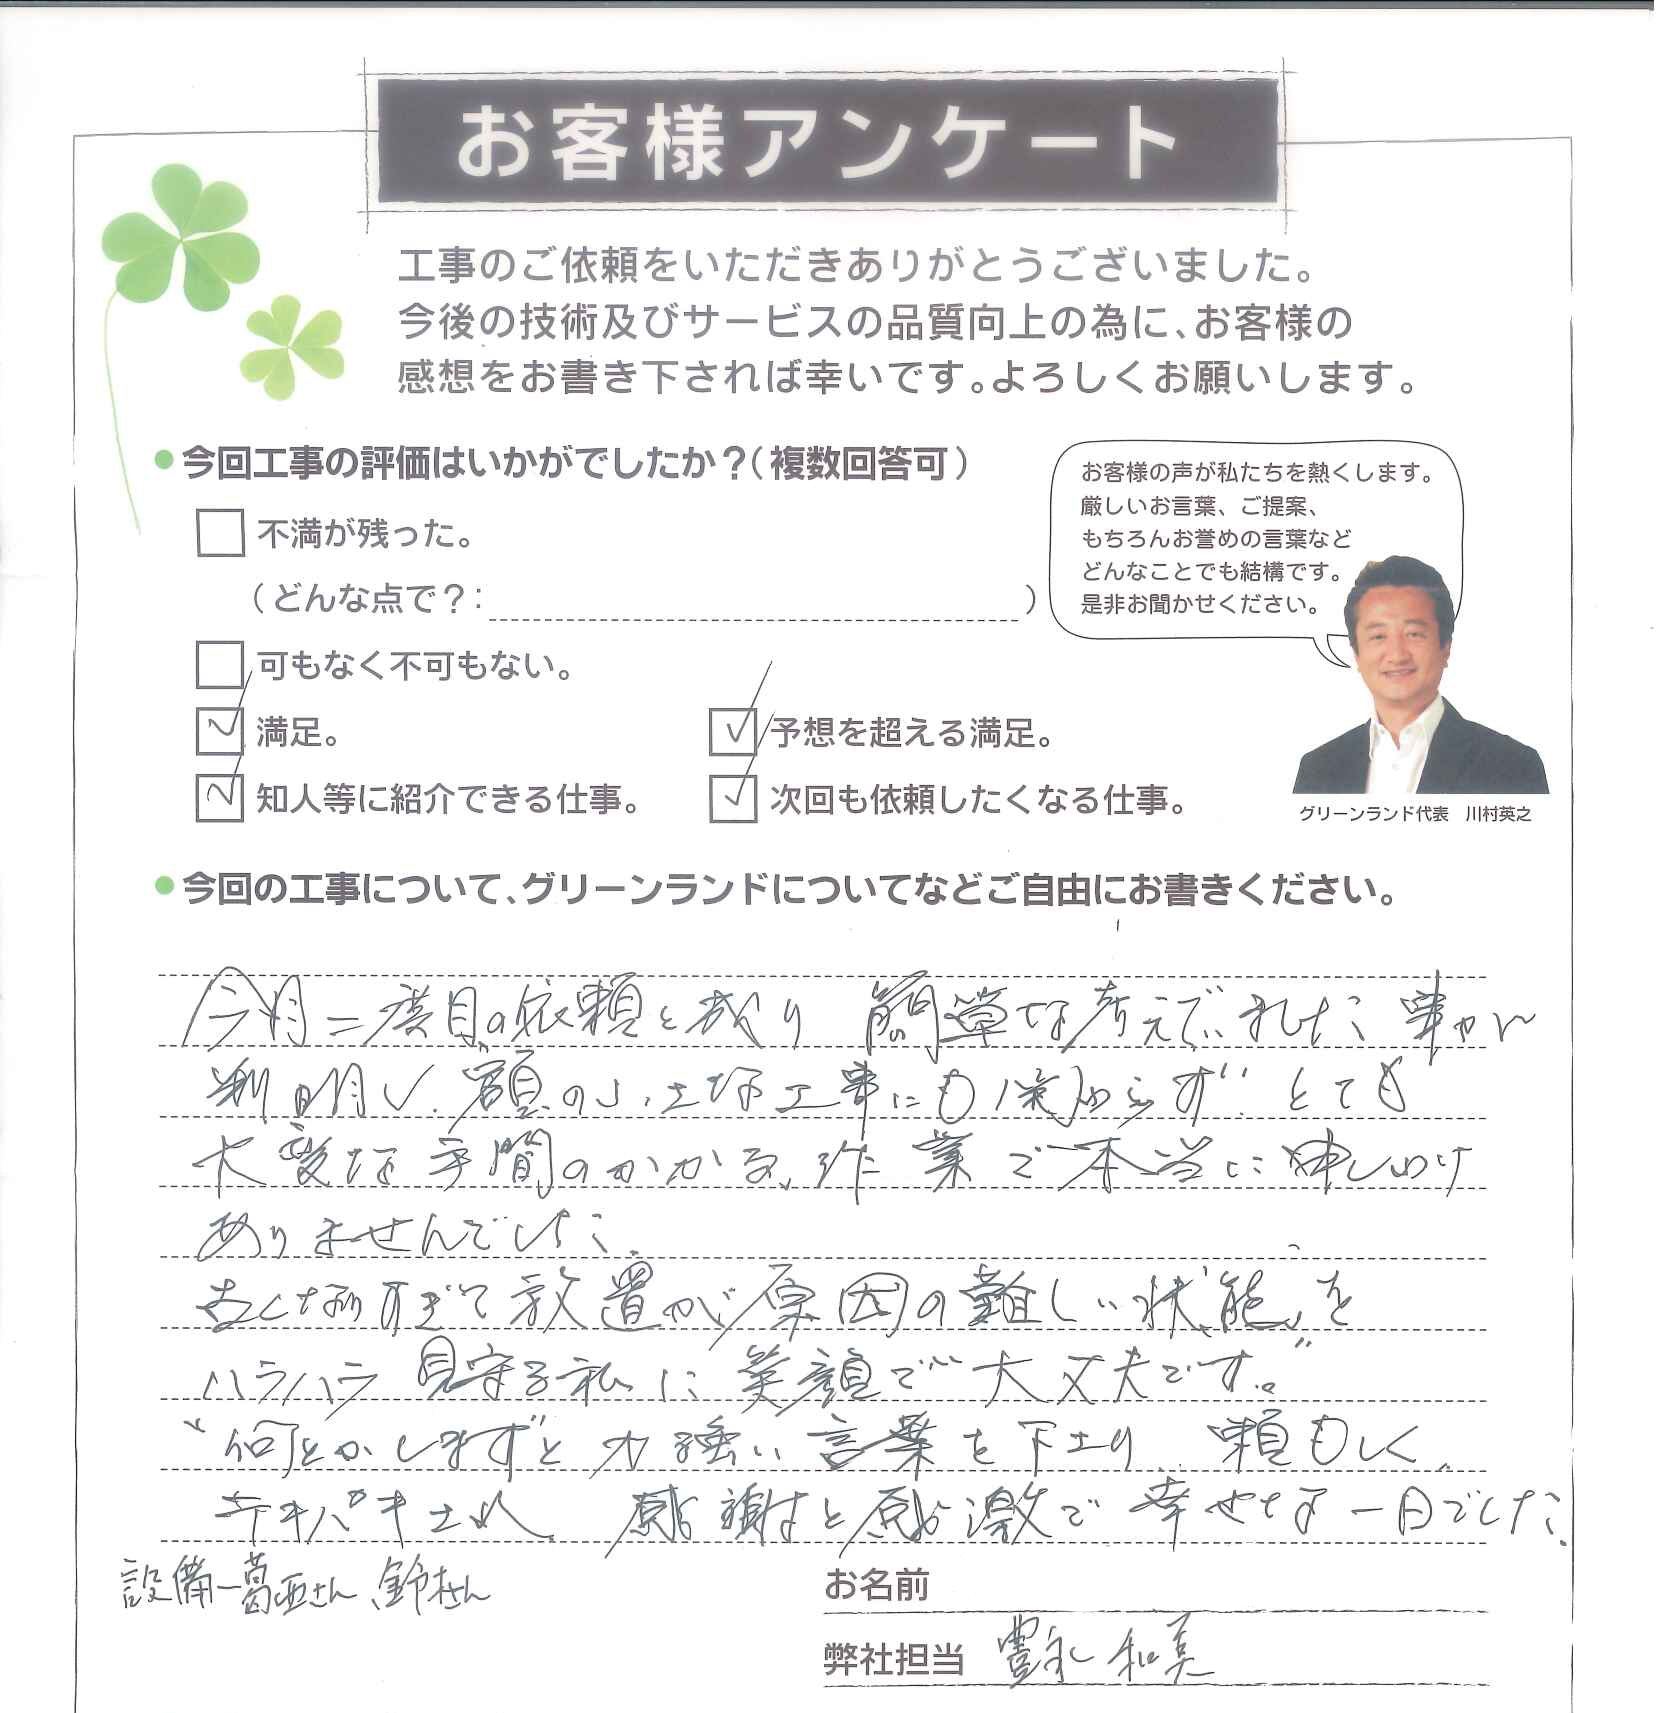 お客様アンケート
工事のご依頼をいただきありがとうございました。
今後の技術及びサービスの品質向上の為に、お客様の
感想をお書き下されば幸いです。よろしくお願いします。
●今回工事の評価はいかがでしたか?(複数回答可)
不満が残った。
(どんな点で?: )
可もなく不可もない。
満足。
予想を超える満足。
知人等に紹介できる仕事。
次回も依頼したくなる仕事。
お客様の声が私たちを熱くします。
厳しいお言葉、ご提案、
もちろんお誉めの言葉など
どんなことでも結構です。
是非お聞かせください。
グリーンランド代表 川村英之
●今回の工事について、グリーンランドについてなどご自由にお書きください。
今月二度目の依頼と成り 簡単な考えでいました事が
判明し、額の小さな工事にも係わらず とても
大変な手間のかかる、作業で本当に申しわけ
ありませんでした。
古くなりすぎて放置が原因の難しい状態、を
ハラハラ見守る私に笑顔で"大丈夫です。"
"何とかします"と力強い言葉を下さり、頼もしく、
テキパキされ、感謝と感激で幸せな一日でした。
設備一葛西さん、鈴木さん
お名前
弊社担当 豊永 和真